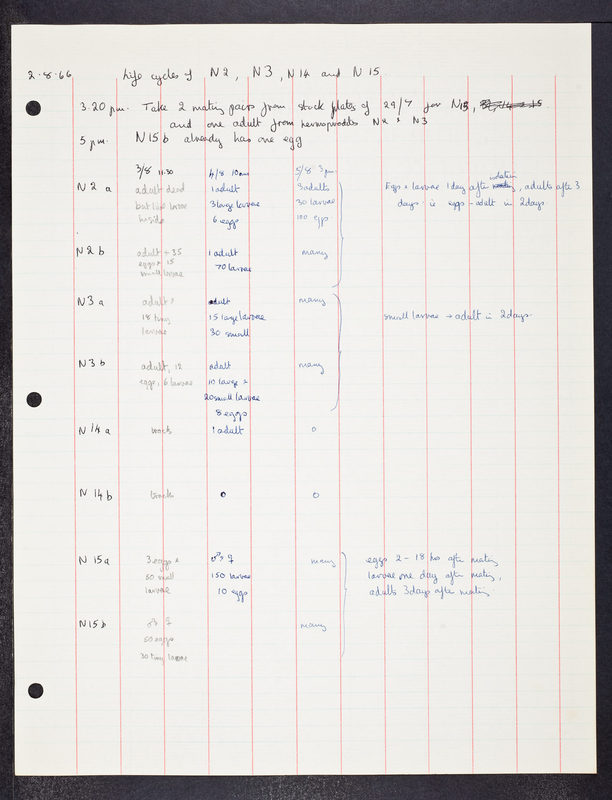 2.8.66 Life cycles of N2, N3, N14 and N15
3.20 pm. Take 2 mating pairs from stock plates of 29/7 for N15,
and one adult from hermaphrodites N2 & N3
5 pm. N15b already has one egg
3/8 11.30 4/8 10am 5/8 3pm
N2 a adult dead 1 adult 3 adults Eggs & larvae 1 day after isolation, adults after 3
but live larvae 3 large larvae 30 larvae days i.e. eggs - adult in 2 days.
inside 6 eggs 100 eggs
N2 b adult + 35 1 adult many
eggs & 15 70 larvae
small larvae
N3 a adult & adult many
18 tiny 15 large larvae small larvae → adult in 2 days.
larvae 30 small
N3 b adult, 12 adult many
eggs, 6 larvae 10 large &
20 small larvae
8 eggs
N14 a tracks 1 adult 0
N14 b tracks 0 0
N15a 3 eggs & ♂ & ♀ many eggs 2-18 hrs after mating
50 small 150 larvae larvae one day after mating,
larvae 10 eggs adults 3 days after mating.
N15b ♂ & ♀ many
50 eggs
30 tiny larvae